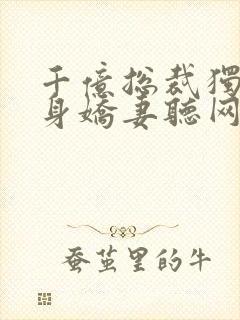 千億総裁獨
身嬌妻聽网
蚕茧里的牛